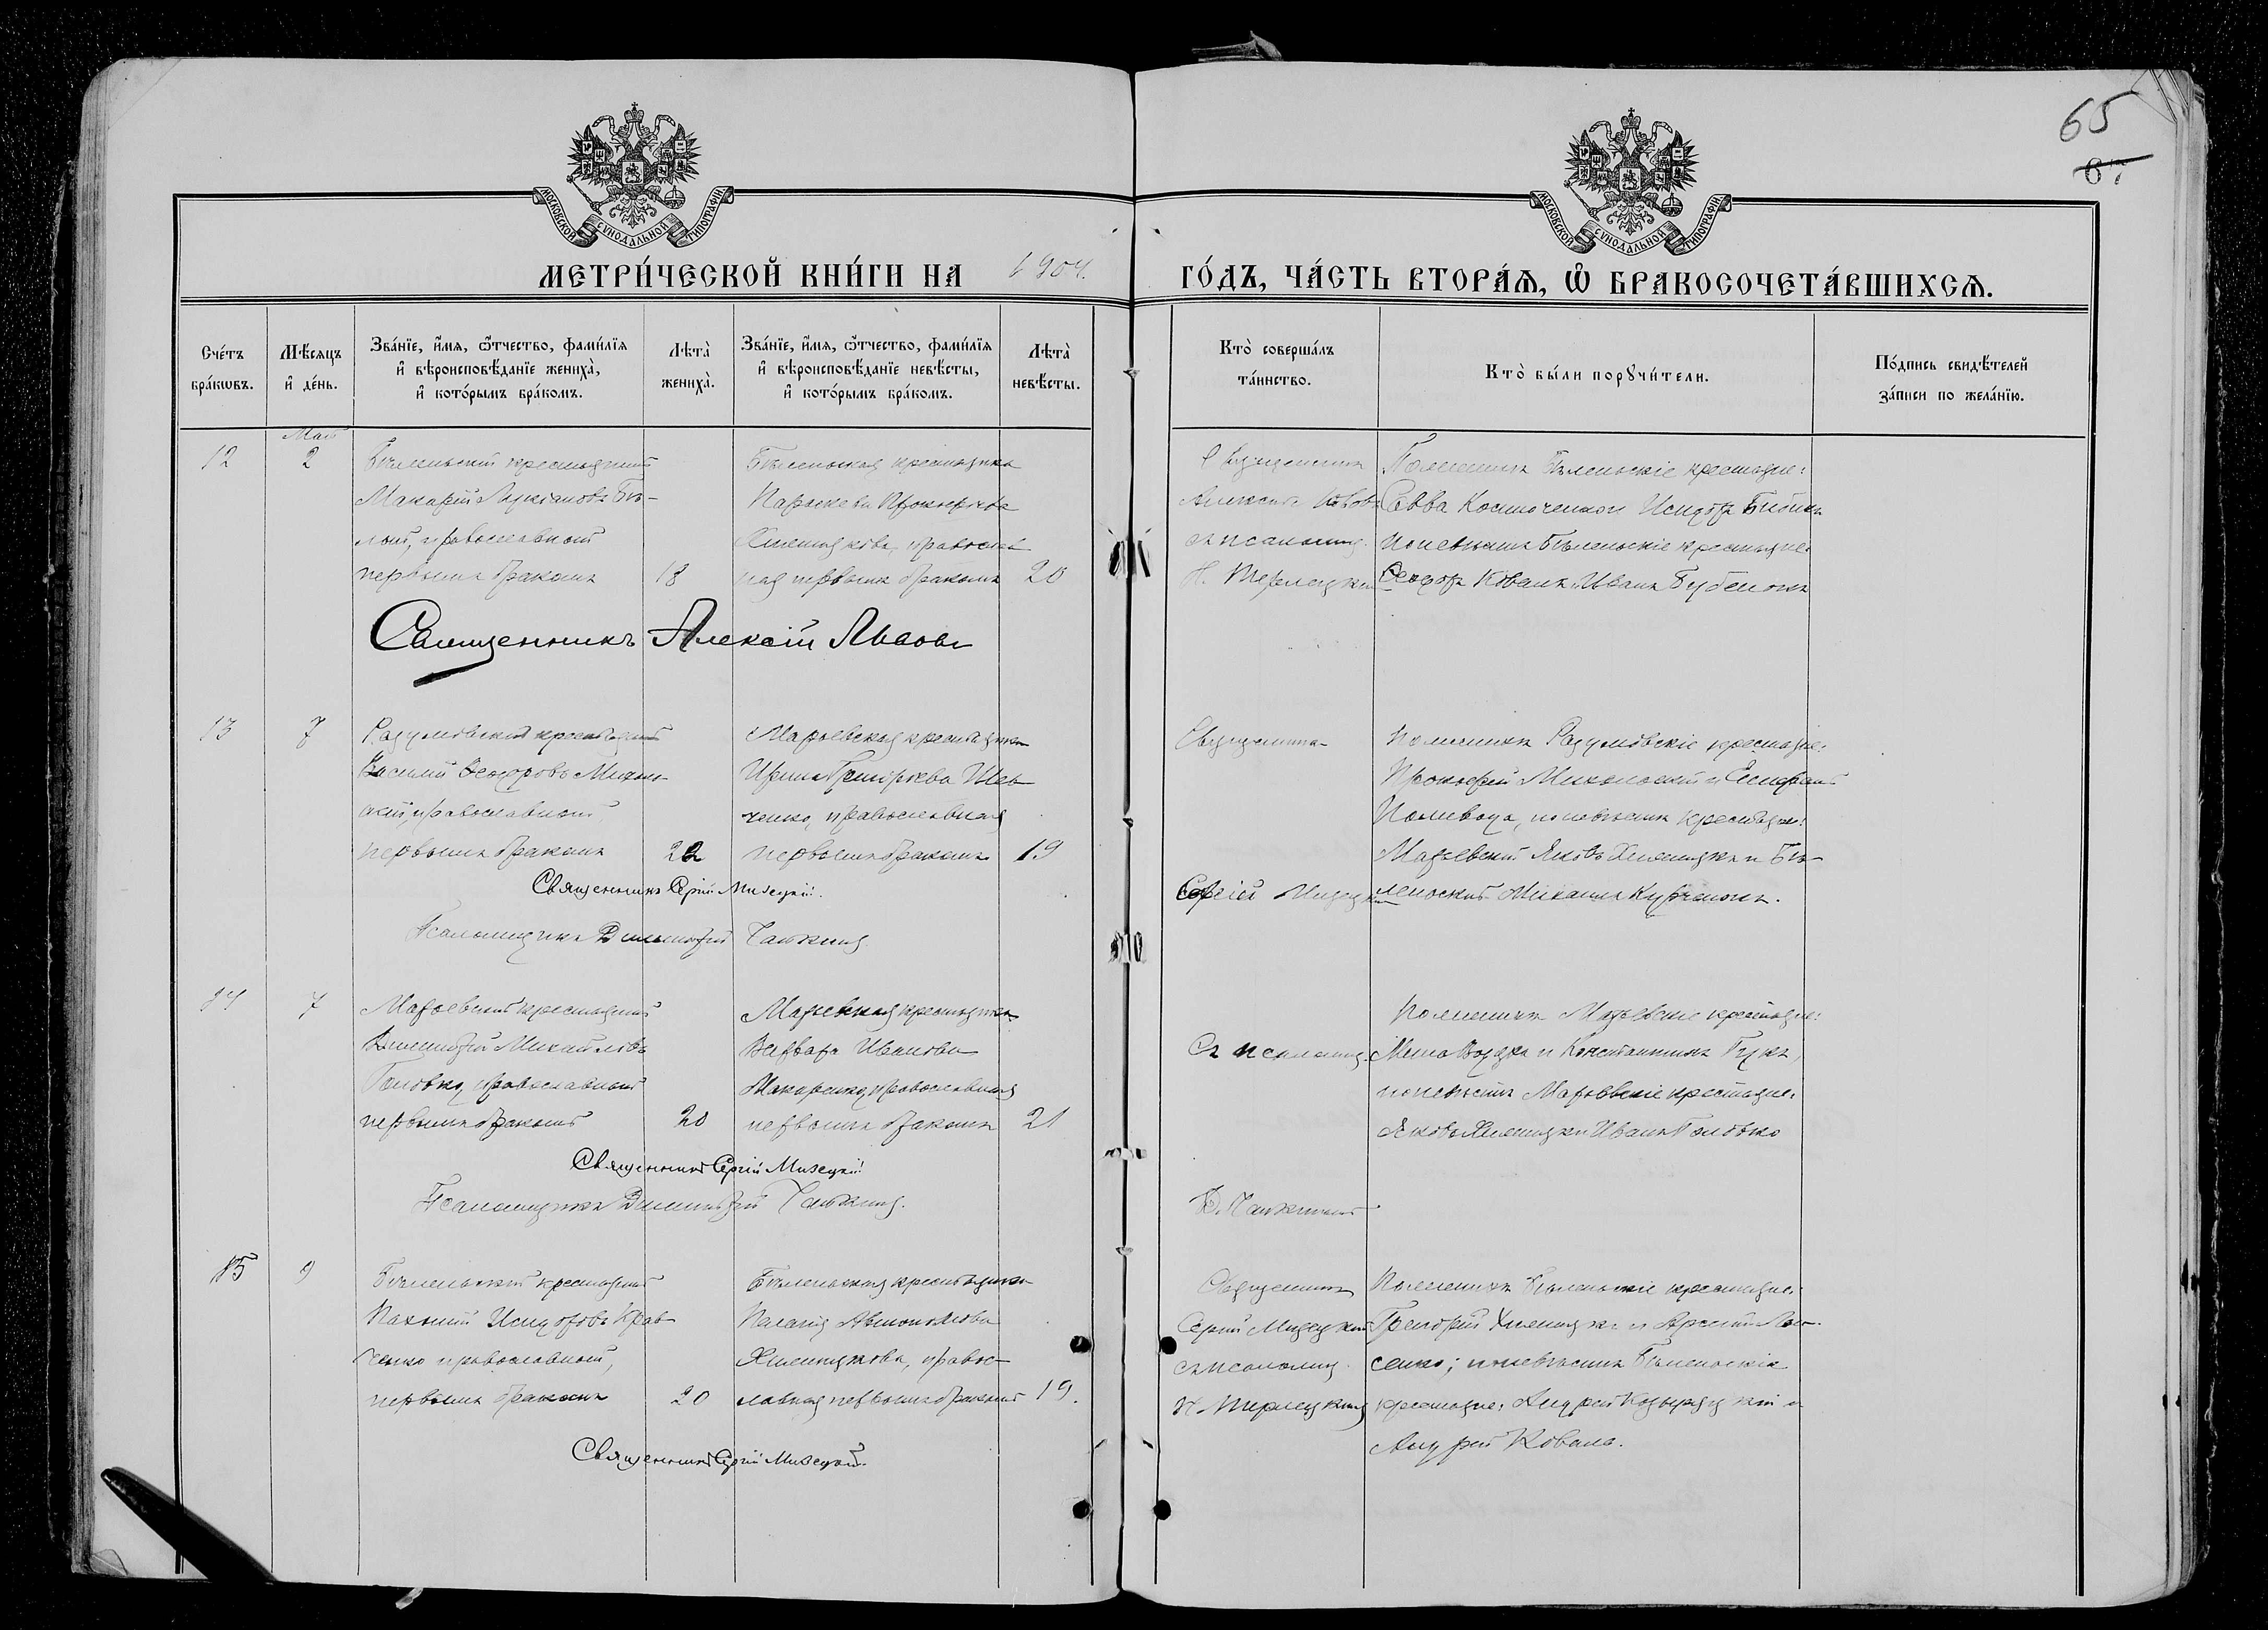 65
МОСКОВСКОЙ СУНОДАЛЬНОЙ ТИПОГРАФІИ
МОСКОВСКОЙ СУНОДАЛЬНОЙ ТИПОГРАФІИ
МЕТРИ́ЧЕСКОЙ КНИ́ГИ НА 1904.
ГО́ДЪ, ЧА́СТЬ ВТОРА́Ѧ, Ѽ БРАКОСОЧЕТА́ВШИХСѦ.
Сче́тъ бра́кѡвъ.
Мѣ́сяцъ и҆ де́нь.
Зва́нїе, и҆́мя, ѻ҆́тчество, фами́лїя и҆ вѣроисповѣ́данїе жениха̀, и҆ кото́рымъ бра́комъ.
Лѣта̀ жениха̀.
Зва́нїе, и҆́мя, ѻ҆́тчество, фами́лїя и҆ вѣроисповѣ́данїе невѣ́сты, и҆ кото́рымъ бра́комъ.
Лѣта̀ невѣ́сты.
Кто̀ соверша́лъ та́инство.
Кто̀ бы́ли порꙋчи́тели.
По́дпись свидѣ́телей за́писи по жела́нїю.
Май
12
2
Бѣленьскій крестьянинъ
Макарій Лукіановъ Бѣ-
лый, православный
первымъ бракомъ
18
Бѣленьская крестьянка
Параскева Прокофіева
Хиленкова, православ
ная первымъ бракомъ
20
Священникъ
Алексій Львовъ
съ псаломщ.
Н. Терлецкимъ
По женихѣ Бѣленьскіе крестьяне:
Савва Костюченко и Исидоръ
по невѣстѣ Бѣленьскіе крестьяне
Ѳеодоръ Коваль и Иванъ Бубенокъ
Священникъ Алексій Львовъ
13
7
Разумовскій крестьянинъ
Василій Ѳеодоровъ Михаль-
скій, православный
первымъ бракомъ
22
Марьевская крестьянка
Ирина Григорьева Шев
ченко, православная
первымъ бракомъ
19
Священникъ
Сергій Мизецкій
По женихѣ Разумовскіе крестьяне:
Прокофій Михальскій и
по невѣстѣ крестьяне:
Марьевскій Яковъ и Бѣ-
леньскій Михаилъ
Священникъ Сергій Мизецкій.
Псаломщикъ Димитрій Чапкинъ
14
7
Марьевскій крестьянинъ
Димитрій Михайловъ
Головко, православный
первымъ бракомъ
20
Марьевская крестьянка
Варвара Иванова
Макаренко, православная
первымъ бракомъ
21
Съ псаломщ.
Д. Чапкинымъ
По женихѣ Марьевскіе крестьяне:
и Константинъ Гукъ,
по невѣстѣ Марьевскіе крестьяне:
Яковъ и Иванъ Головко
Священникъ Сергій Мизецкій
Псаломщикъ Димитрій Чапкинъ.
15
9
Бѣленьскій крестьянинъ
Пахомій Исидоровъ Крав
ченко православный,
первымъ бракомъ
20
Бѣленьская крестьянка
Пелагія Автономова
Хиленкова, правос-
лавная первымъ бракомъ
19.
Священникъ
Сергій Мизецкій
съ псаломщ.
Н. Терлецкимъ
По женихѣ Бѣленьскіе крестьяне:
Григорій и Арсеній Лы-
сенко; по невѣстѣ Бѣленьскіе
крестьяне: Андрей и
Андрей Коваль.
Священникъ Сергій Мизецкій.